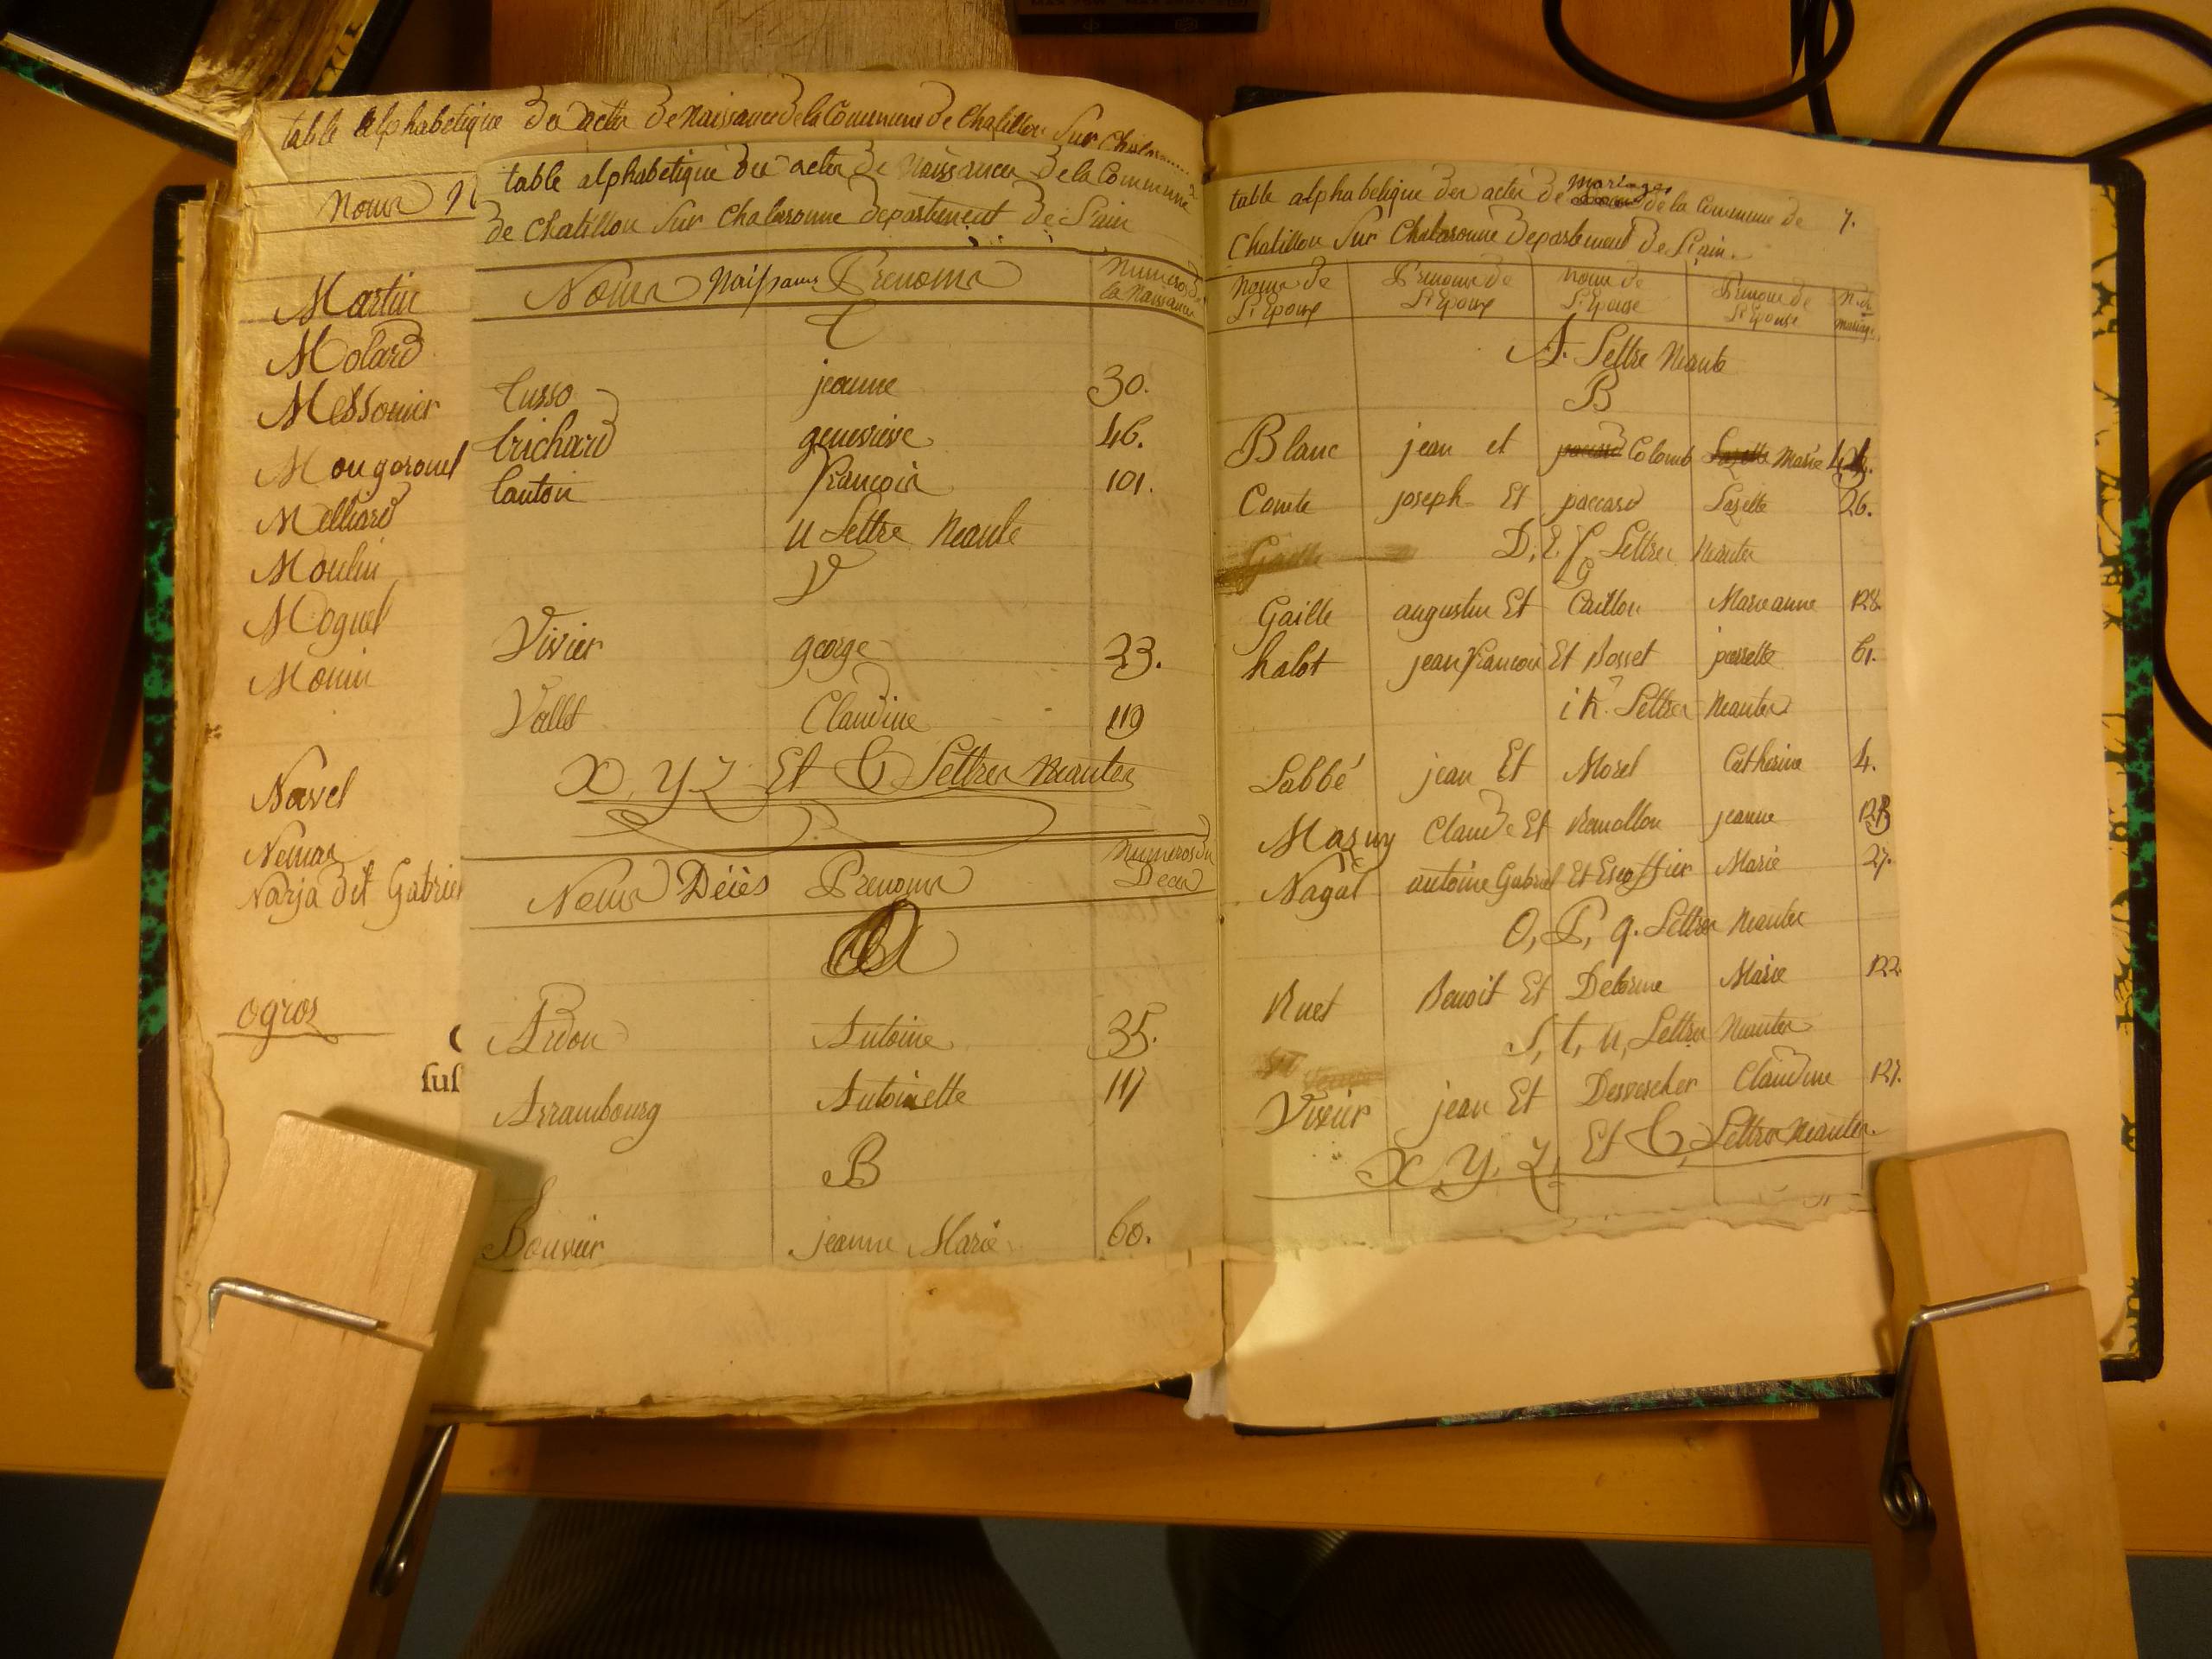 table alphabetique des actes de Naissance de la Commune de Chatillon Sur Chalar
Noms N
Martin
Molard
Messonier
Mougoronel
Melliard
Moulin
Moguel
Monin
Navel
Nemoz
Narja dit Gabriel
ogros
sus
table alphabetique des actes de Naissances de la Commune
de Chatillon Sur Chalaronne departement de L'ain
Noms Naissans Prenoms Numeros de la Naissance
T
tusso jeanne 30.
trichard genevieve 46.
tanton francois 101.
u Lettre Neante
V
Vivier george 23.
Vallet Claudine 119
X, Y Z Et & Lettres Neantes
Noms Décès Prenoms Numeros du Deces
A
Ardon Antoine 35.
Arrambourg Antoinette 117
B
Bouvier jeanne Marie 60.
table alphabetique des actes de mariages de la Commune de 7.
Chatillon Sur Chalaronne Departement de L'ain.
Noms de L'Epoux Prenoms de L'Epoux Noms de L'Epouse Prenoms de L'Epouse N. de mariage
A. Lettre Neante
B
Blanc jean et Colomb Marie
Comte joseph Et paccard Lazette 26.
Gaille
D, E, f, Lettres Neantes
G
Gaille augustin Et Caillon Marieanne 128.
halot jean francois Et Bosset pierrette 61.
i k. Lettres Neantes
Labbé jean Et Morel Catherine 4.
Mazuy Claude Et Remollon jeanne 123
Nagat antoine Gabriel Et Escoffier Marie 27.
O, P, q. Lettres Neantes
Ruet Benoit Et Delorme Marie 122.
S, t, u, Lettres Neantes
Vivier jean Et Desvescher Claudine 127.
X, Y, Z, Et &, Lettres Neantes.